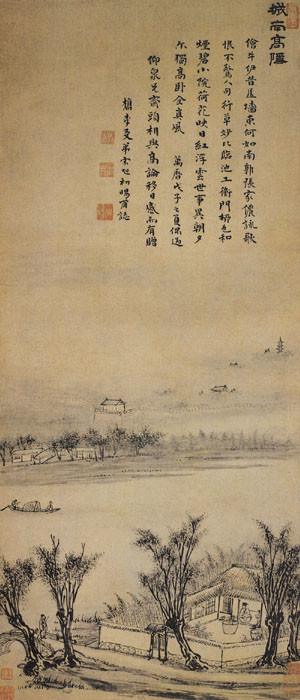 城南高隱
儈牛伊昔居墻東何如南郭張家儂詠歌
恨不驚人句行草妙比臨池工衡門柳色和
煙碧小院荷花映日紅浮雲世事異朝夕
尓獨高卧全真風 萬曆戊子夏偶過
仰泉兄齋頭相與高論移日感而有贈
檇李友弟宋旭初暘甫誌